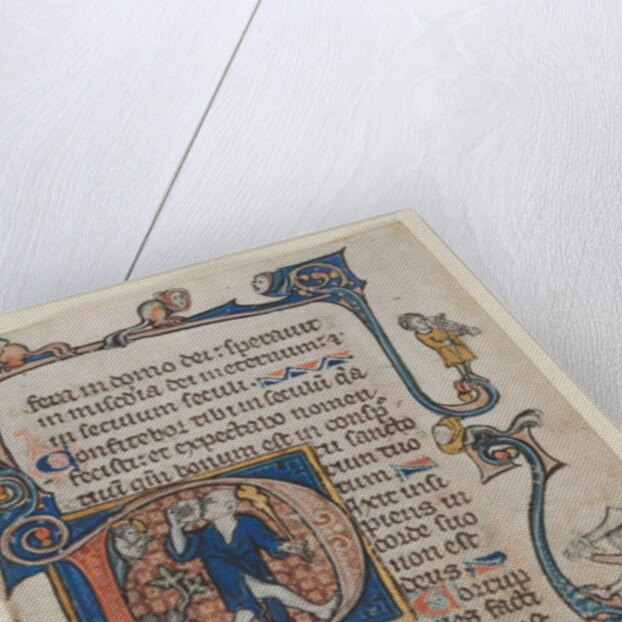 fera in domo dei : speraui
in misc̄dia dei in eternum : ⁊
in seculum seculi
Confitebor tibi in seculū q̄a
fecisti : et expectabo nomen
tuū qm̄ bonum est in conspc̄
tu sancto
rum tuo
rum
ixit insi
piens in
corde suo
non est
deus Corrup
facti